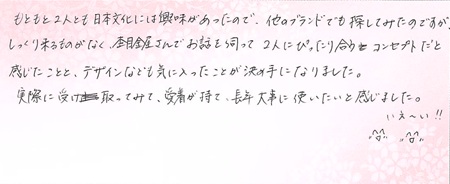 もともと2人とも日本文化には興味があったので、他のブランドでも探してみたのですが、
しっくり来るものがなく、杢目金屋さんでお話を伺って2人にぴったり合うコンセプトだと
感じたことと、デザインなども気に入ったことが決め手になりました。
実際に受け取ってみて、愛着が持て、長年大事に使いたいと感じました。
いえ〜い!!